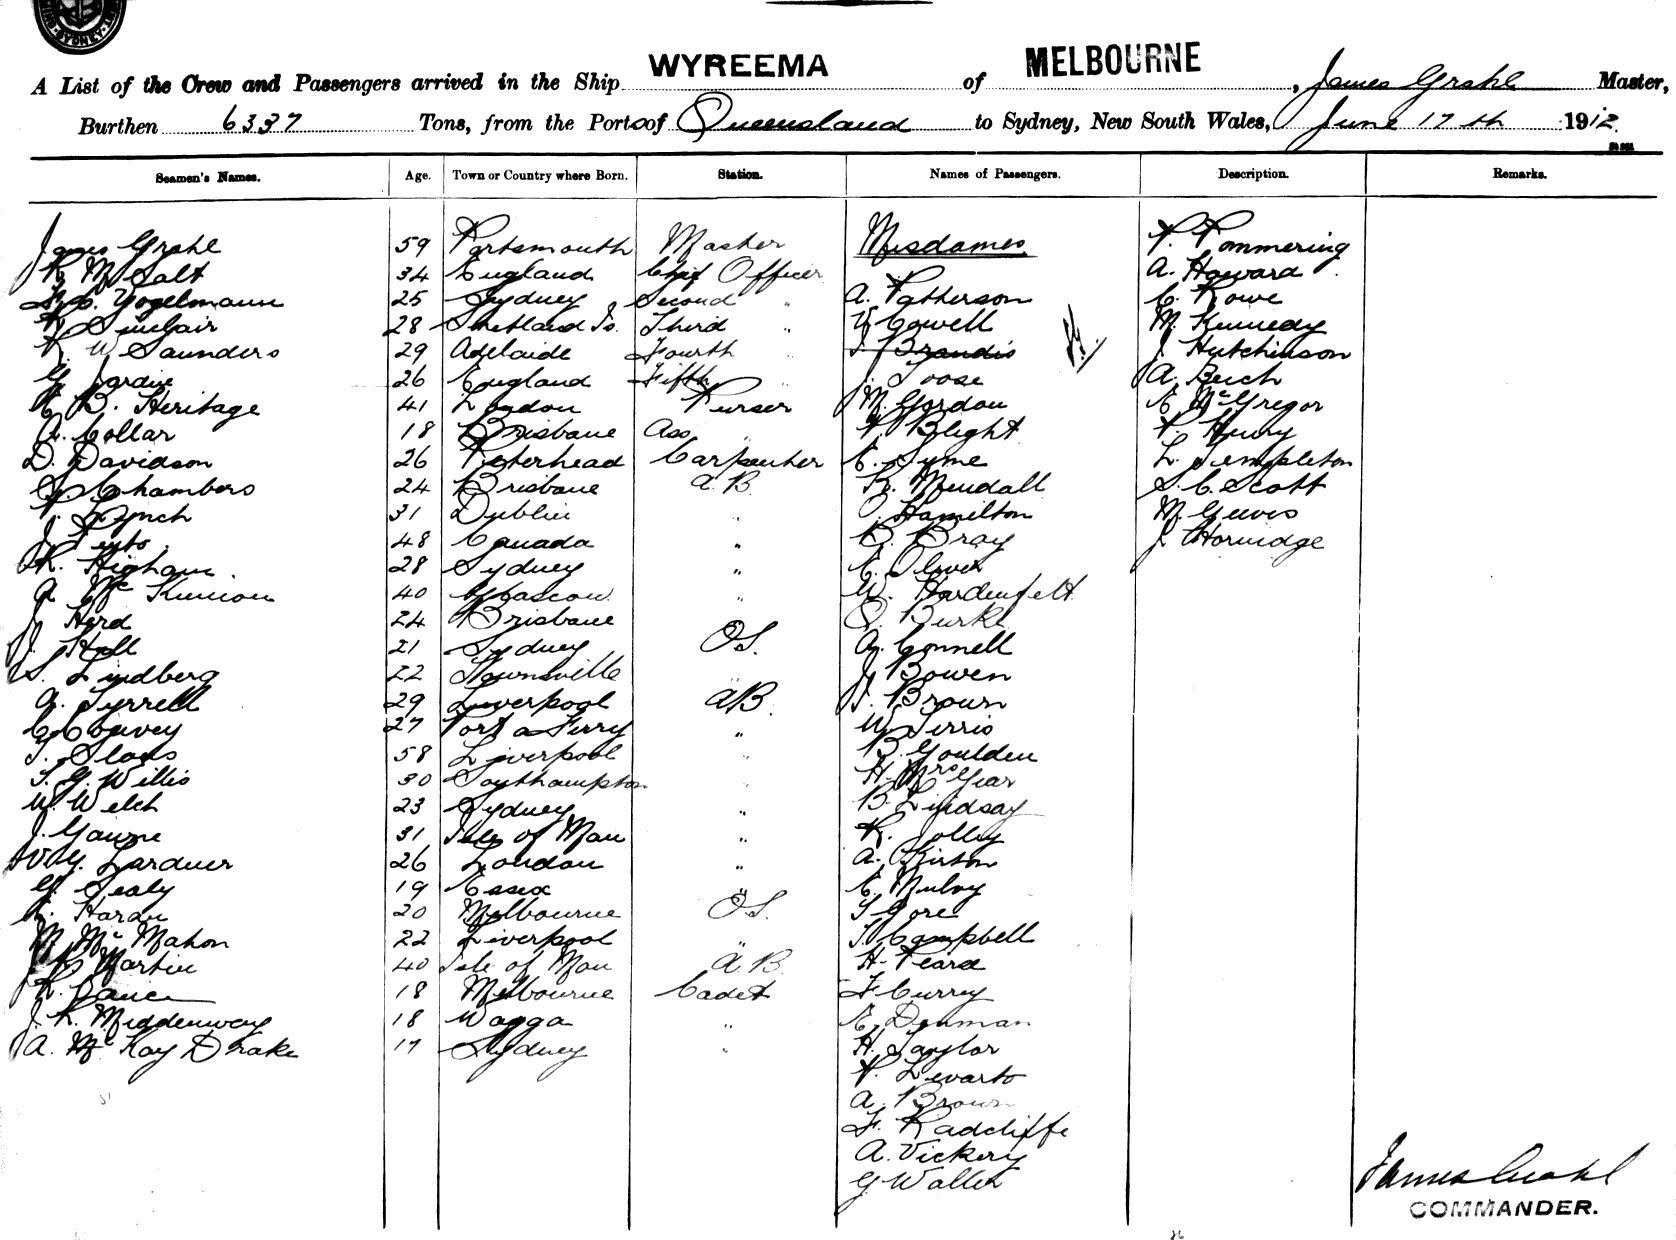 SYDNEY
A List of the Crew and Passengers arrived in the Ship WYREEMA of MELBOURNE, James Grahl Master,
Burthen 6337 Tons, from the Ports of Queensland to Sydney, New South Wales, June 17th 1912
Seamen's Names. Age. Town or Country where Born. Station. Names of Passengers. Description. Remarks.
James Grahl 59 Portsmouth Master Mesdames P. Pommering
R McSalt 34 England Chief Officer A. Howard
Vogelmann 25 Sydney Second " A. Patherson C. Rowe
R Sinclair 28 Shetland Is. Third " V Cowell M. Kennedy
R W Saunders 29 Adelaide Fourth " J. Brandis J Hutchinson
G Jardine 26 England Fifth " J. Toose A. Beich
E B. Heritage 41 London Purser M. Gordon E McGregor
A. Collar 18 Brisbane Ass " P Blight P. Henry
D. Davidson 26 Peterhead Carpenter E. Syme L. Templeton
S Chambers 24 Brisbane A.B. K. Mendall S. C. Scott
P. Lynch 31 Dublin " Hamilton M Geeves
J. 48 Canada " B. Bray J. Hornidge
R. Higham 28 Sydney " E. Oliver
A. McKinnon 40 Glascow " W. Hardenfelt
J. Herd 24 Brisbane " Burke
J. Hall 21 Sydney O.S. A. Connell
S. Lindberg 22 Townsville " J. Bowen
A. Tyrrell 29 Liverpool AB. J. Brown
C Cogvey 27 Port a Ferry " W Ferris
T. Sloos 58 Liverpool " B. Goulden
T. G. Willis 30 Southampton " H. McGear
W. Welch 23 Sydney " B. Lindsay
J. Gawne 31 Isle of Man " R. Jolley
W G. Lardner 26 London " A. Kirton
G. Sealy 19 Essex " E. Mulvy
Hardy 20 Melbourne O.S. T Gore
M McMahon 22 Liverpool " T. Campbell
J. R. Martin 40 Isle of Man A.B. H. Peard
R. Vance 18 Melbourne Cadet F Curry
J. R. Middenway 18 Wagga " E. Denman
A. McKay Drake 17 Sydney " H. Taylor
P. Levarto
A. Brown
F. Radcliffe
A. Vickery
G Waller
James Grahl
COMMANDER.